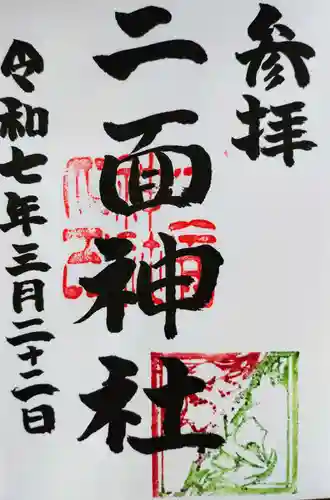 参拝
二面神社
令和七年三月二十二日